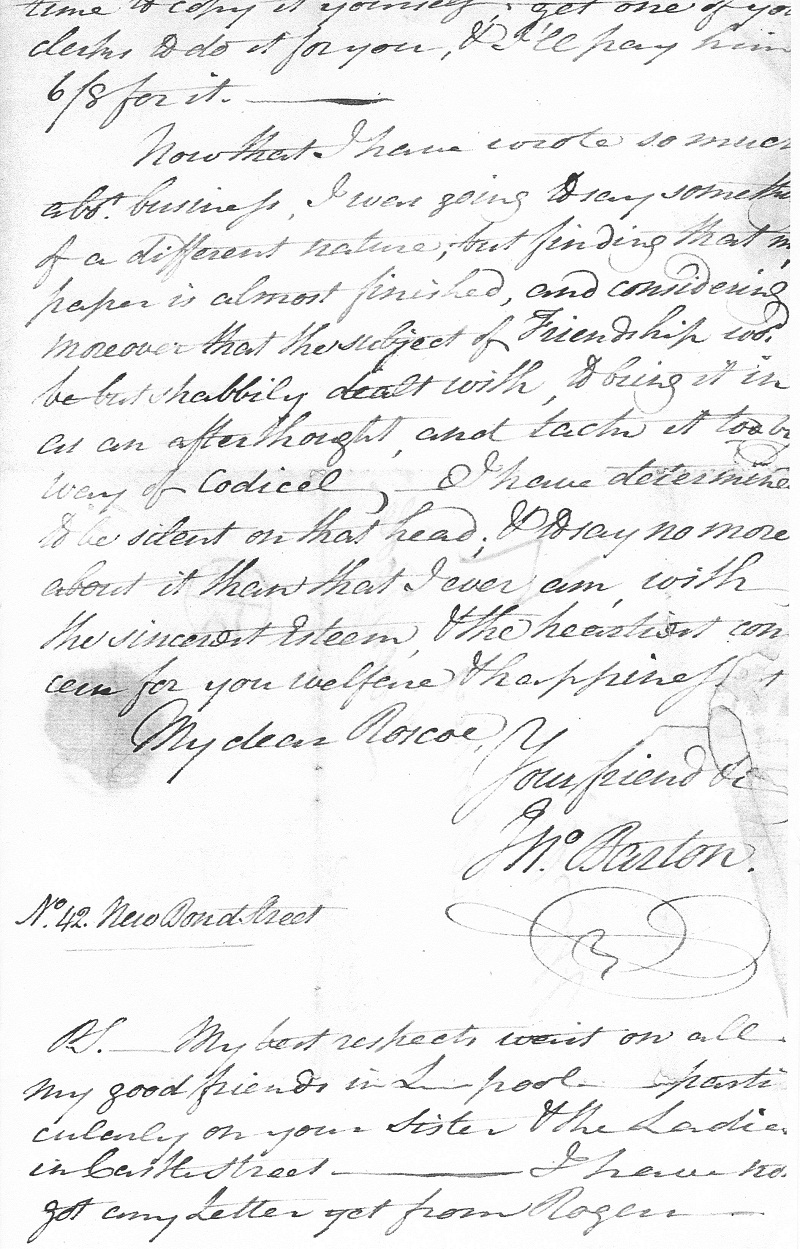 time to copy it yourself, get one of you
clerks to do it for you, & I'll pay him
6/8 for it.
Now that I have wrote so much
abt. business, I was going to say somethi
of a different nature, but finding that m
paper is almost finished, and considering
moreover that the subject of Friendship wod.
be but shabbily dealt with, to bring it in
as an afterthought, and tack it to by
way of Codicel, I have determine
to be silent on that head, & to say no more
about it than that I ever am, with
the sincerest Esteem, & the heartiest con
cern for you welfare & happiness
My dear Roscoe,
Your friend &c
Jno. Barton.
No. 42. New Bond Street
P.S. — My best respects wait on all
my good friends in L—pool — parti
cularly on your Sister & the Ladie
in Castle Street — I have no
got any Letter yet from Rogers —